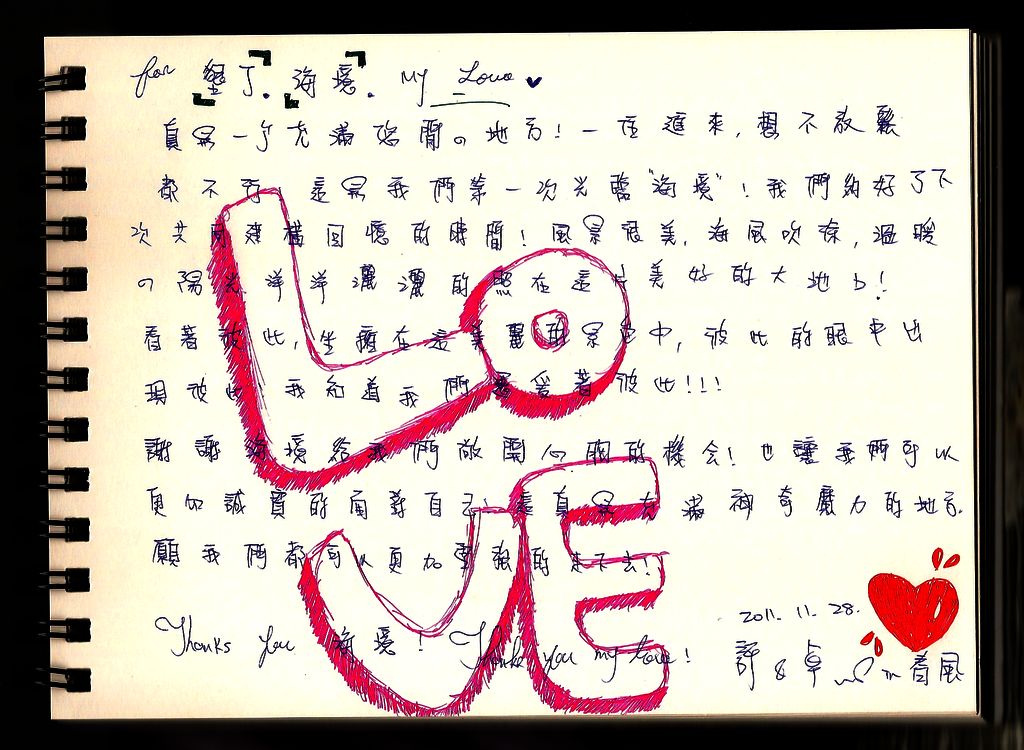 for 墾丁. 海境. My Love ♥
真是一个充滿悠閒の地方！一走進來，想不放鬆
都不行！這是我們第一次光臨"海境"！我們約好了下
次共同建構回憶的時間！風景很美，海風吹徐，溫暖
の陽光洋洋灑灑的照在這片美好的大地上！
看著彼此，坐擁在這美麗的景色中，彼此的眼中出
現彼此 我知道我們愛著彼此!!!
謝謝海境給我們敞開心胸的機会！也讓我們可以
更加誠實的面對自己 這真是充滿神奇魔力的地方.
願我們都可以更加堅強的走下去！
Thanks You 海境！Thanks you my love！
LOVE
2011. 11. 28.
許 & 卓 in 春風